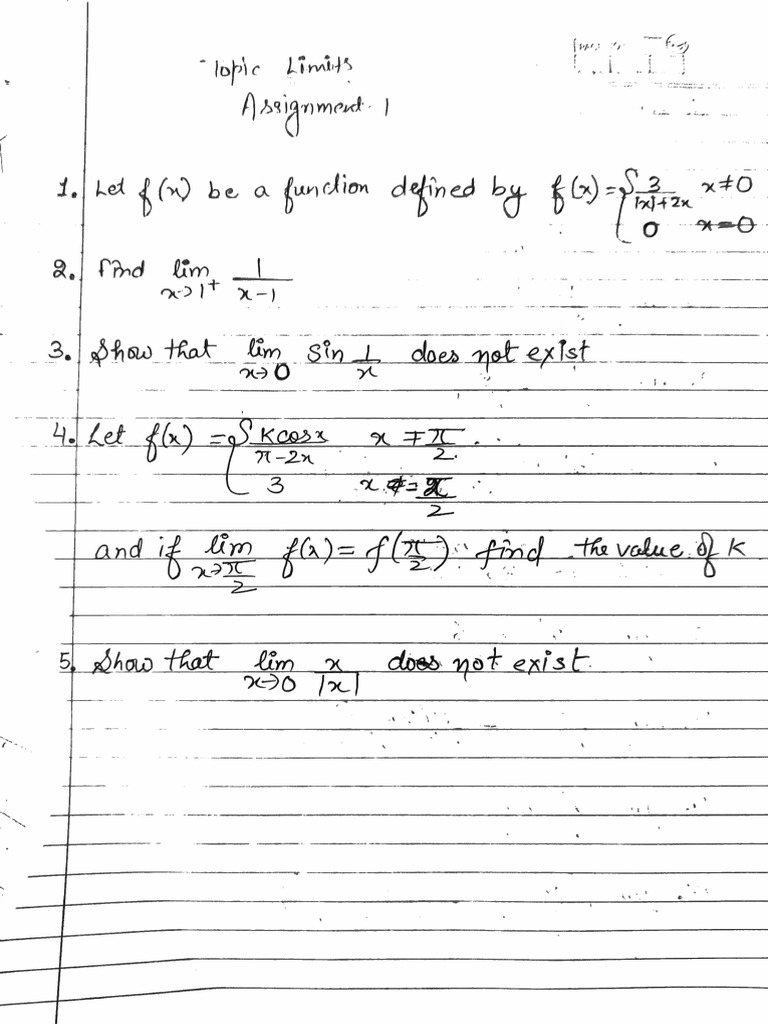 Topic Limits
Assignment. 1
1. Let f(x) be a function defined by f(x) = { 3/(|x|+2x) x≠0
0 x=0
2. Find lim x→1+ 1/(x-1)
3. Show that lim x→0 sin 1/x does not exist
4. Let f(x) = { Kcosx/(π-2x) x ≠ π/2
3 x = π/2
and if lim x→π/2 f(x) = f(π/2) find the value of K
5. Show that lim x→0 x/|x| does not exist.